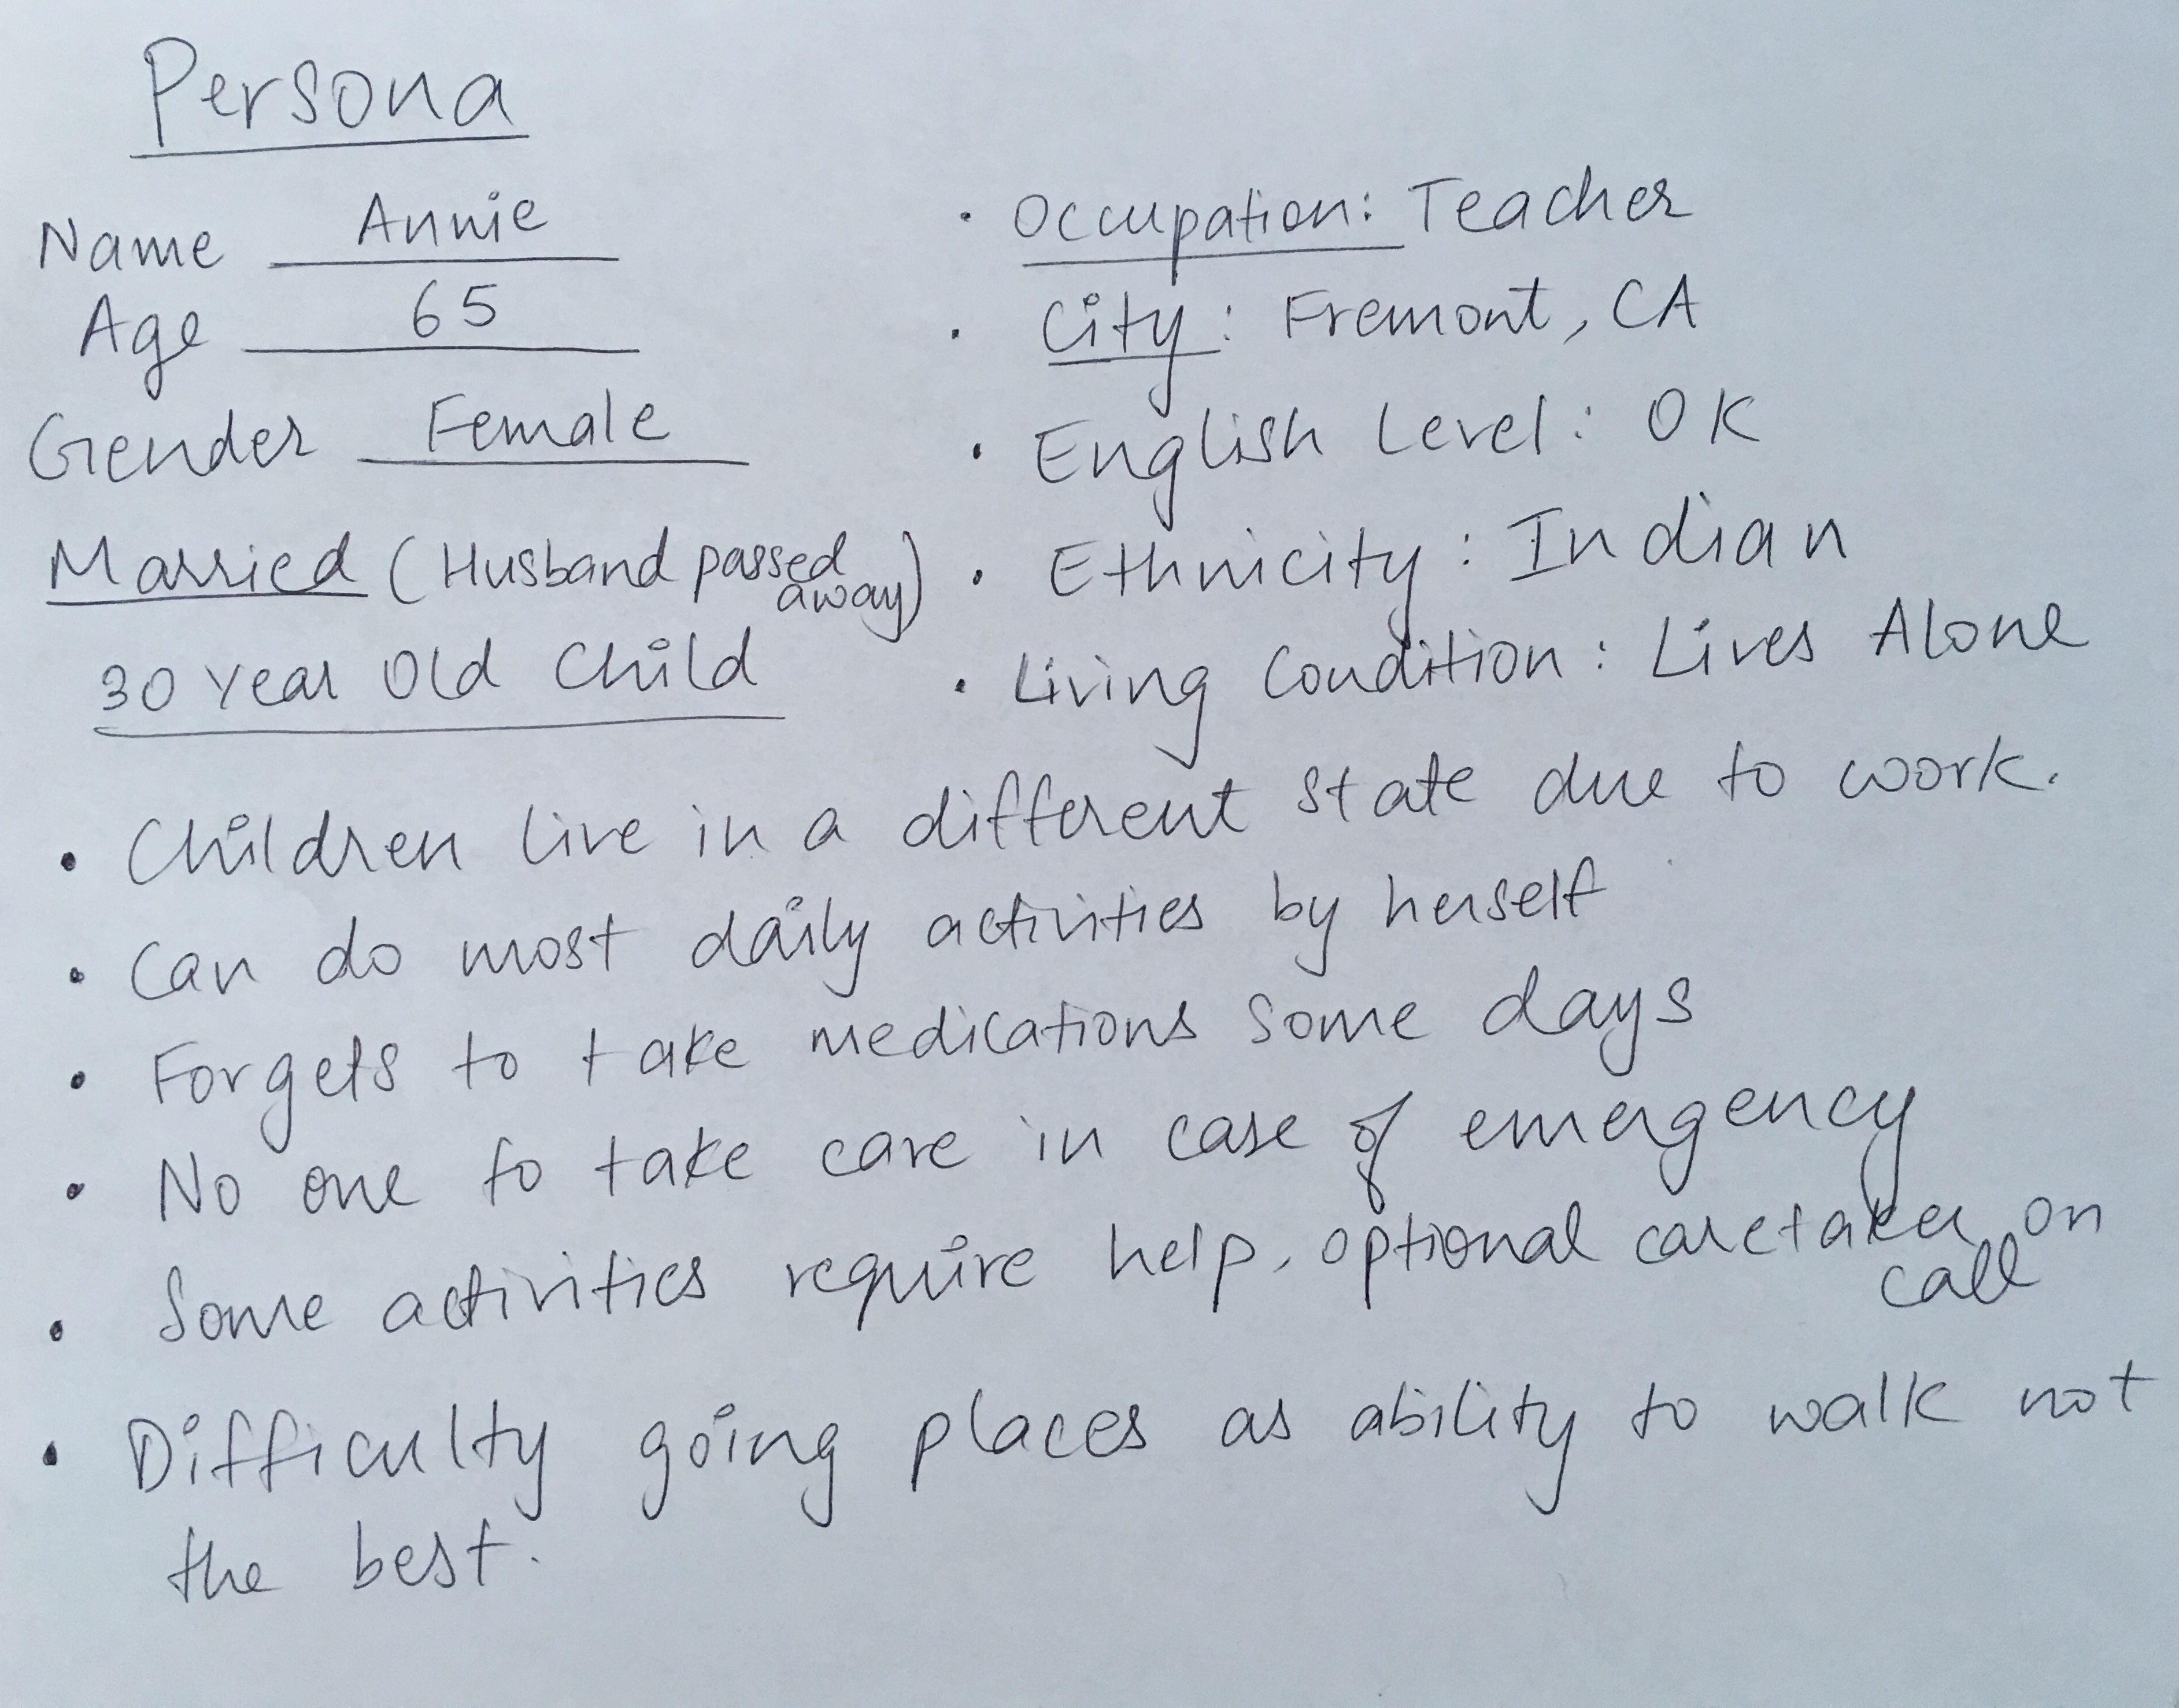 Persona
Name Annie
Age 65
Gender Female
Married (Husband passed away)
30 Year Old Child
• Occupation: Teacher
• City: Fremont, CA
• English Level: OK
• Ethnicity: Indian
• Living Condition: Lives Alone
• Children live in a different state due to work.
• Can do most daily activities by herself
• Forgets to take medications some days
• No one to take care in case of emergency
• Some activities require help, optional caretaker on call
• Difficulty going places as ability to walk not
the best.